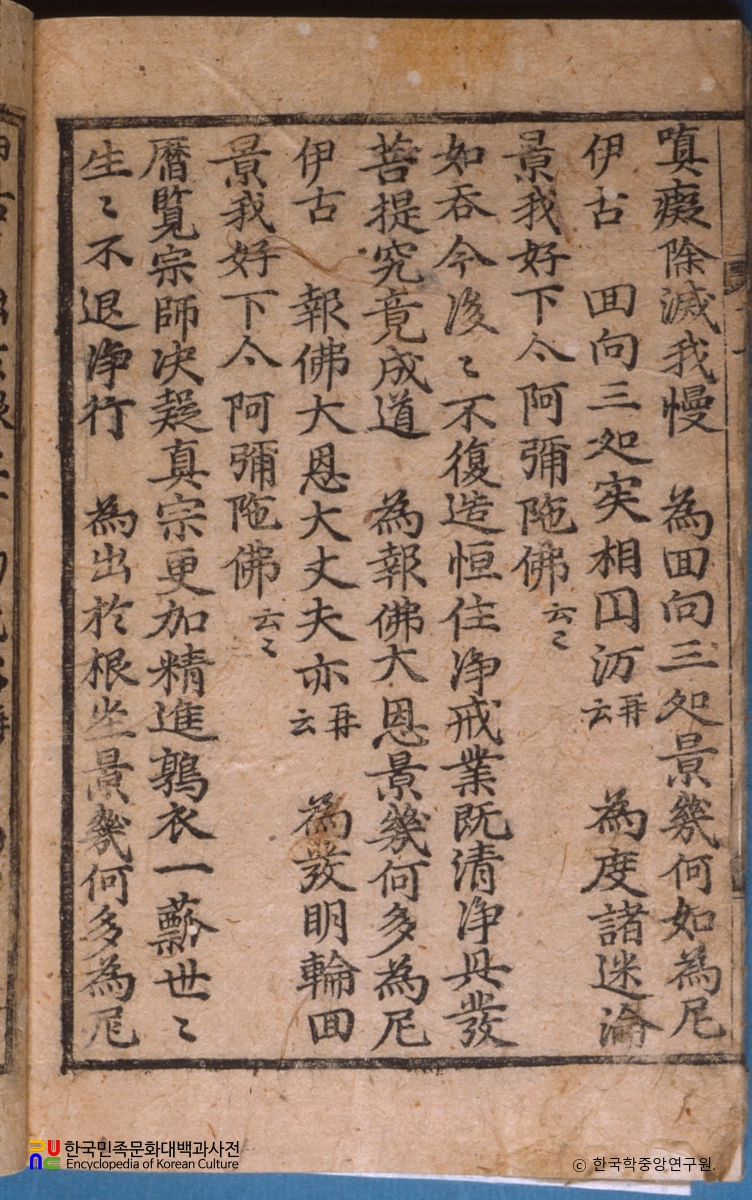 嗔癡除滅我慢　為囬向三処景幾何如為尼
伊古　囬向三処実相円沥再云　為度諸迷淪
景我好下仒阿彌陁佛云〻
如吞今後〻不復造恒住淨戒業既清淨具發
菩提究竟成道　為報佛大恩景幾何多為尼
伊古　報佛大恩大丈夫亦再云　為發明輪囬
景我好下仒阿彌陁佛云〻
曆覽宗師决疑真宗更加精進鶉衣一瓢世〻
生〻不退淨行　為出於根坐景幾何多為尼
한국민족문화대백과사전
Encyclopedia of Korean Culture
© 한국학중앙연구원.